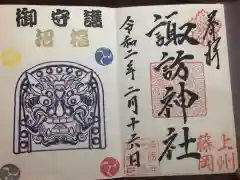 奉拝
諏訪神社
令和二年二月十六日
上州
藤岡
御守護
招福